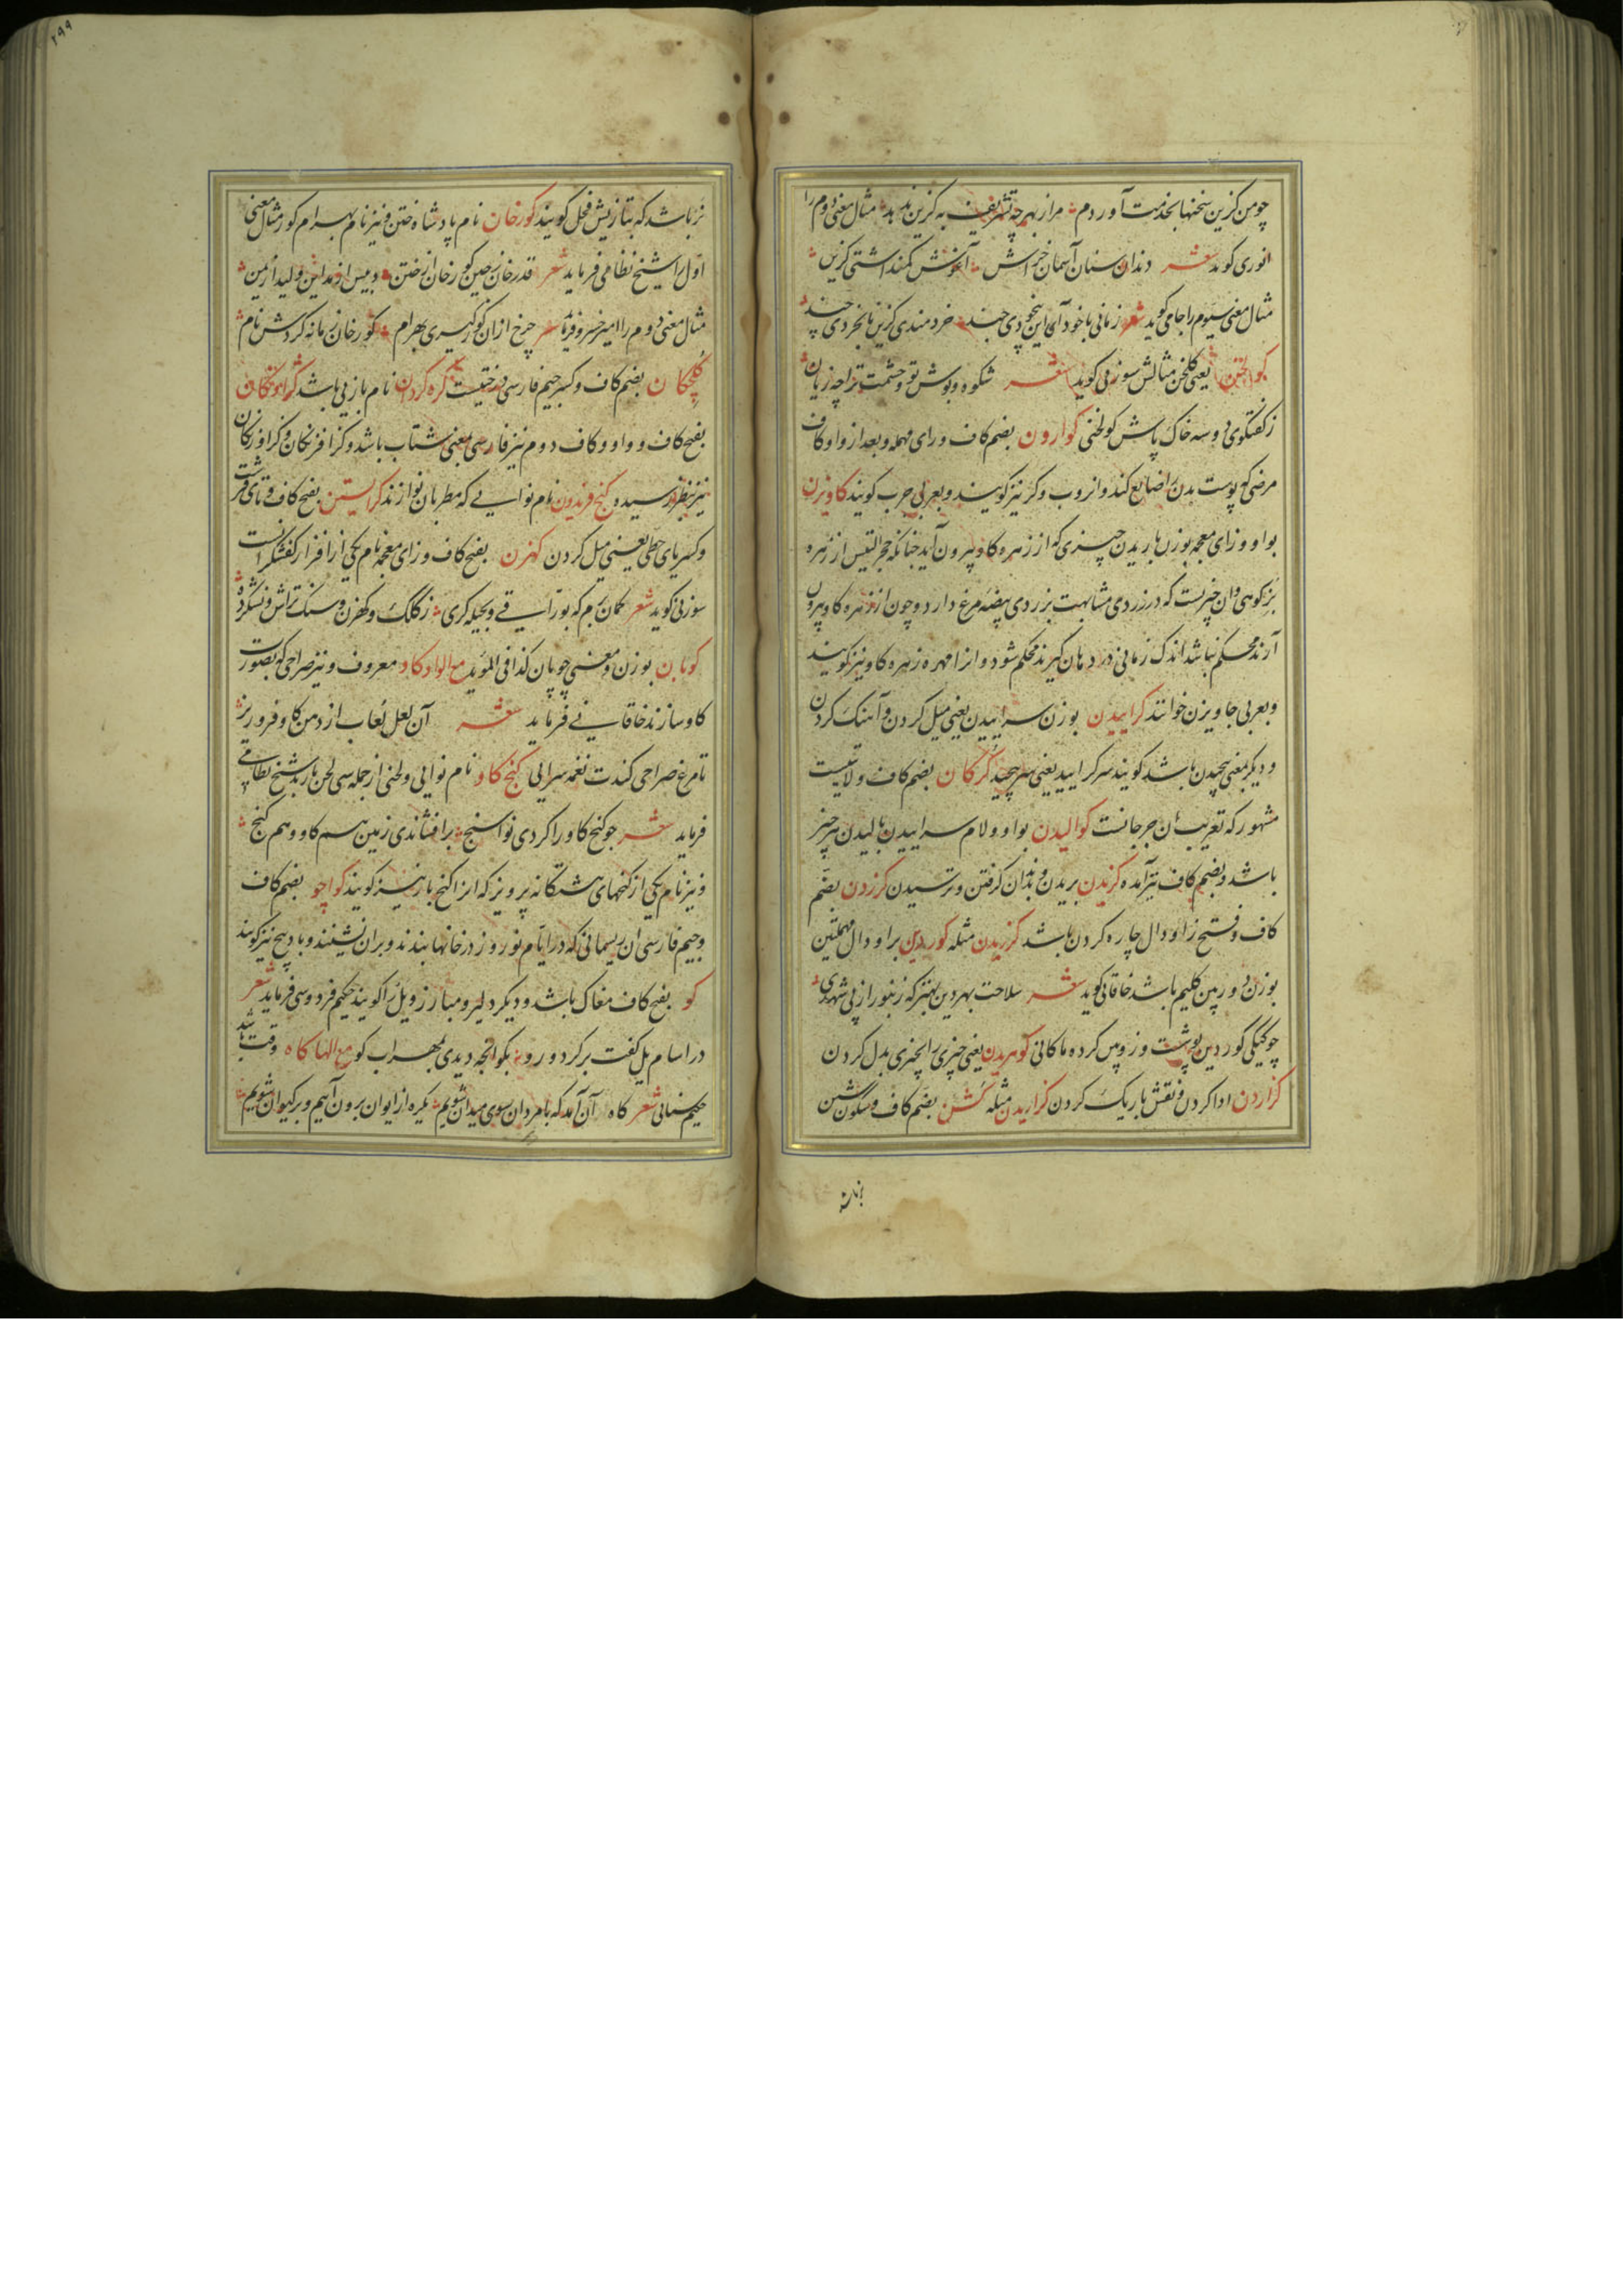 چو من کزین سخنها بخدمت آوردم مرا زبهر چه تشریف به کزین ندهد مثال معنی دوم را
انوری کوید شعر دندان سنان آسمان خراش آغوش کمند اشتی کزین
مثال معنی سیوم را جامی کوید شعر زمانی با خود آی این بیخودی چند خردمندی کزین نابخردی چند
یعنی کلخن مثالش سوزنی کوید شعر شکوه و بوش تو و حشمت ترا چه زیان
زکفتکوی دو سه خاک پاش کولخنی کوارون بضم کاف و رای مهمله و بعد از واو کاف
مرضی که پوست بدن را ضایع کند و انروب و کر نیز کویند و بعربی جرب کویند کاویزن
بواو و زای معجمه بوزن باریدن چیزی که از زهره کاو بیرون آید چنانکه حجر التیس از زهره
بز کوهی وان چیزیست که در زردی مشابهت بزردی بیضه مرغ دارد و چون از زهره کاو بیرون
آرند محکم نباشد اندک زمانی در دهان کیرند محکم شود و انرا مهره زهره کاو نیز کویند
و بعربی جاویزن خوانند کراییدن بوزن سراییدن یعنی میل کردن و آهنک کردن
و دیکر بمعنی پیچیدن باشد کویند سر کرایید یعنی سر پیچید کرکان بضم کاف ولایتیست
مشهور که تعریب آن جرجانست کوالیدن بواو و لام سراییدن بالیدن هر چیز
باشد و بضم کاف نیز آمده کزیدن بریدن و بدندان کرفتن و ترسیدن کزردن بضم
کاف و فتح زا و دال چاره کردن باشد کزریدن مثله کوردین براو دال مهملتین
بوزن دوربین کلیم باشد خاقانی کوید شعر سلاحت بهر دین بهتر که زنبور از پی شهدی
چو کیکی کوردین پوشت وزو پس کرده ماکانی کوهریدن یعنی چیزی را بچیزی بدل کردن
کزاردن ادا کردن و نقش باریک کردن کزاریدن مثله کشن بضم کاف و سکون شین
نر باشد که بتازیش فحل کویند کورخان نام پادشاه ختن و نیز نام بهرام کور مثال معنی
اول را شیخ نظامی فرماید شعر قدر خان ز چین کور خان از ختن دبیس از مداین ولید از یمن
مثال معنی دوم را امیر خسرو فرماید شعر چرخ از ان کور کیری بهرام کورخان زمانه کردش نام
کلچکان بضم کاف و کسر جیم فارسی درختیست کره کردان نام بازیی باشد
بفتح کاف و واو و کاف دوم نیز فارسی بمعنی شتاب باشد و کزافرنکان و کرافرنکان
نیز بنظر رسیده کنج فریدون نام نوایی که مطربان نوازند کرایستن بفتح کاف و تای قرشت
و کسر یای حطی یعنی میل کردن کهزن بفتح کاف و زای معجمه نام یکی از افزار کفشکرانست
سوزنی کوید شعر کمان برم که بوراقی و بحیله کری زکالک و کهزن و سنک تراش و نشکرده
کوبان بوزن و معنی چوپان کذا فی المؤید مع الواو کاو معروف و نیز صراحی که بصورت
کاو سازند خاقانی فرماید شعر آن لعل لعاب از دهن کاو فرو ریز
تا مرغ صراحی کندت نغمه سرایی کنج کاو نام نوایی و لحنی از جمله سی لحن باربد شیخ نظامی
فرماید شعر چو کنج کاو را کردی نوا سنج برافشاندی زمین هم کاو و هم کنج
و نیز نام یکی از کنجهای هشتکانه پرویز که انرا کنج بار نیز کویند کواچو بضم کاف
و جیم فارسی ان ریسمانی که در ایام نوروز در خانها بندند و بران نشینند و باد پیچ نیز کویند
کو بفتح کاف مغاک باشد و دیکر دلیر و مبارز و یل را کویند حکیم فردوسی فرماید شعر
در اسام یل کفت برکرد و رو بکو انچه دیدی بمهراب کو مع الها کاه وقت باشد
حکیم سنائی شعر کاه آن آمد که با مردان سوی میدان شویم یکره از ایوان برون آییم و بر کیوان شویم